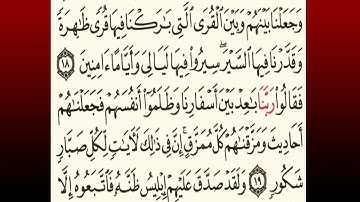 وَجَعَلْنَا بَيْنَهُمْ وَبَيْنَ ٱلْقُرَى ٱلَّتِى بَٰرَكْنَا فِيهَا قُرًى ظَٰهِرَةً
وَقَدَّرْنَا فِيهَا ٱلسَّيْرَ ۖ سِيرُوا۟ فِيهَا لَيَالِىَ وَأَيَّامًا ءَامِنِينَ ١٨
فَقَالُوا۟ رَبَّنَا بَٰعِدْ بَيْنَ أَسْفَارِنَا وَظَلَمُوٓا۟ أَنفُسَهُمْ فَجَعَلْنَٰهُمْ
أَحَادِيثَ وَمَزَّقْنَٰهُمْ كُلَّ مُمَزَّقٍ ۚ إِنَّ فِى ذَٰلِكَ لَءَايَٰتٍ لِّكُلِّ صَبَّارٍ
شَكُورٍ ١٩ وَلَقَدْ صَدَّقَ عَلَيْهِمْ إِبْلِيسُ ظَنَّهُۥ فَٱتَّبَعُوهُ إِلَّا